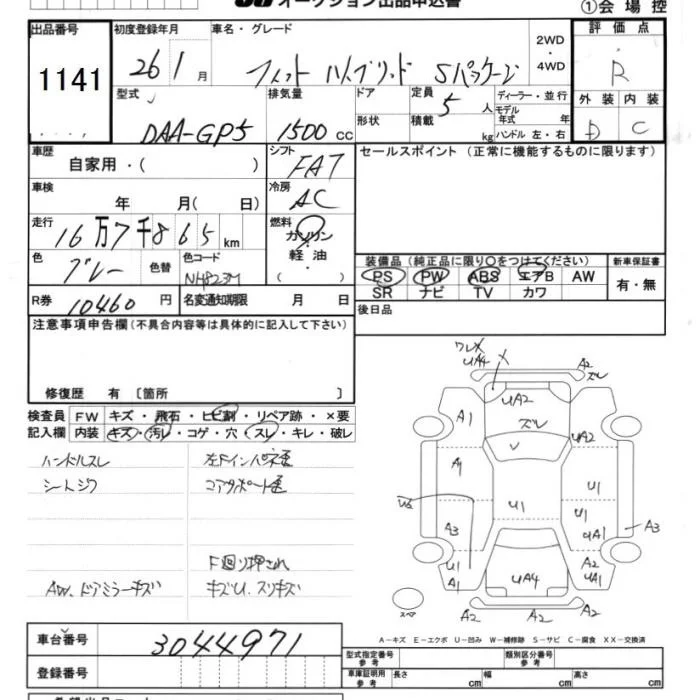 オークション出品申込書
①会場控
出品番号 初度登録年月 車名・グレード 評価点
1141 26 1月 フィット ハイブリッド Sパッケージ 2WD・4WD R
型式 排気量 ドア形状 定員 5人 積載 kg ディーラー・並行 モデル年式 年 ハンドル 左・右 外装 内装
DAA-GP5 1500cc D C
車歴 自家用・( ) シフト FAT セールスポイント(正常に機能するものに限ります)
車検 年 月( 日) 冷房 AC
走行 16万7千865km 燃料 ガソリン・軽油・( )
色 グレー 色替 色コード NH823M
装備品(純正品に限り○をつけてください) 新車保証書
PS PW ABS エアB AW 有・無
SR ナビ TV カワ
R券 10460円 名変通知期限 月 日
後日品
注意事項申告欄(不具合内容等は具体的に記入して下さい)
修復歴 有〔箇所 〕
検査員記入欄 FW キズ・飛石・ヒビ割・リペア跡・×要
内装 キズ・汚レ・コゲ・穴・スレ・キレ・破レ
ハンドルスレ 左Fインパネ歪
シートジワ コアサポート歪
F廻り押され
AW、ドアミラーキズ キズU、スリキズ
ワレX
UA4 X A2
ズレ
UA2
A1 ズレ UA2
V
A1 U1
U1 U1
A3 UA1 A3
U1 A2
A1 UA4 UA1
スペア A2 A2 A2
A-キズ E-エクボ U-凹み W-補修跡 S-サビ C-腐食 XX-交換済
車台番号 3044971
型式指定番号 参考 類別区分番号 参考
登録番号 車庫証明用 参考 長さ cm 幅 cm 高さ cm